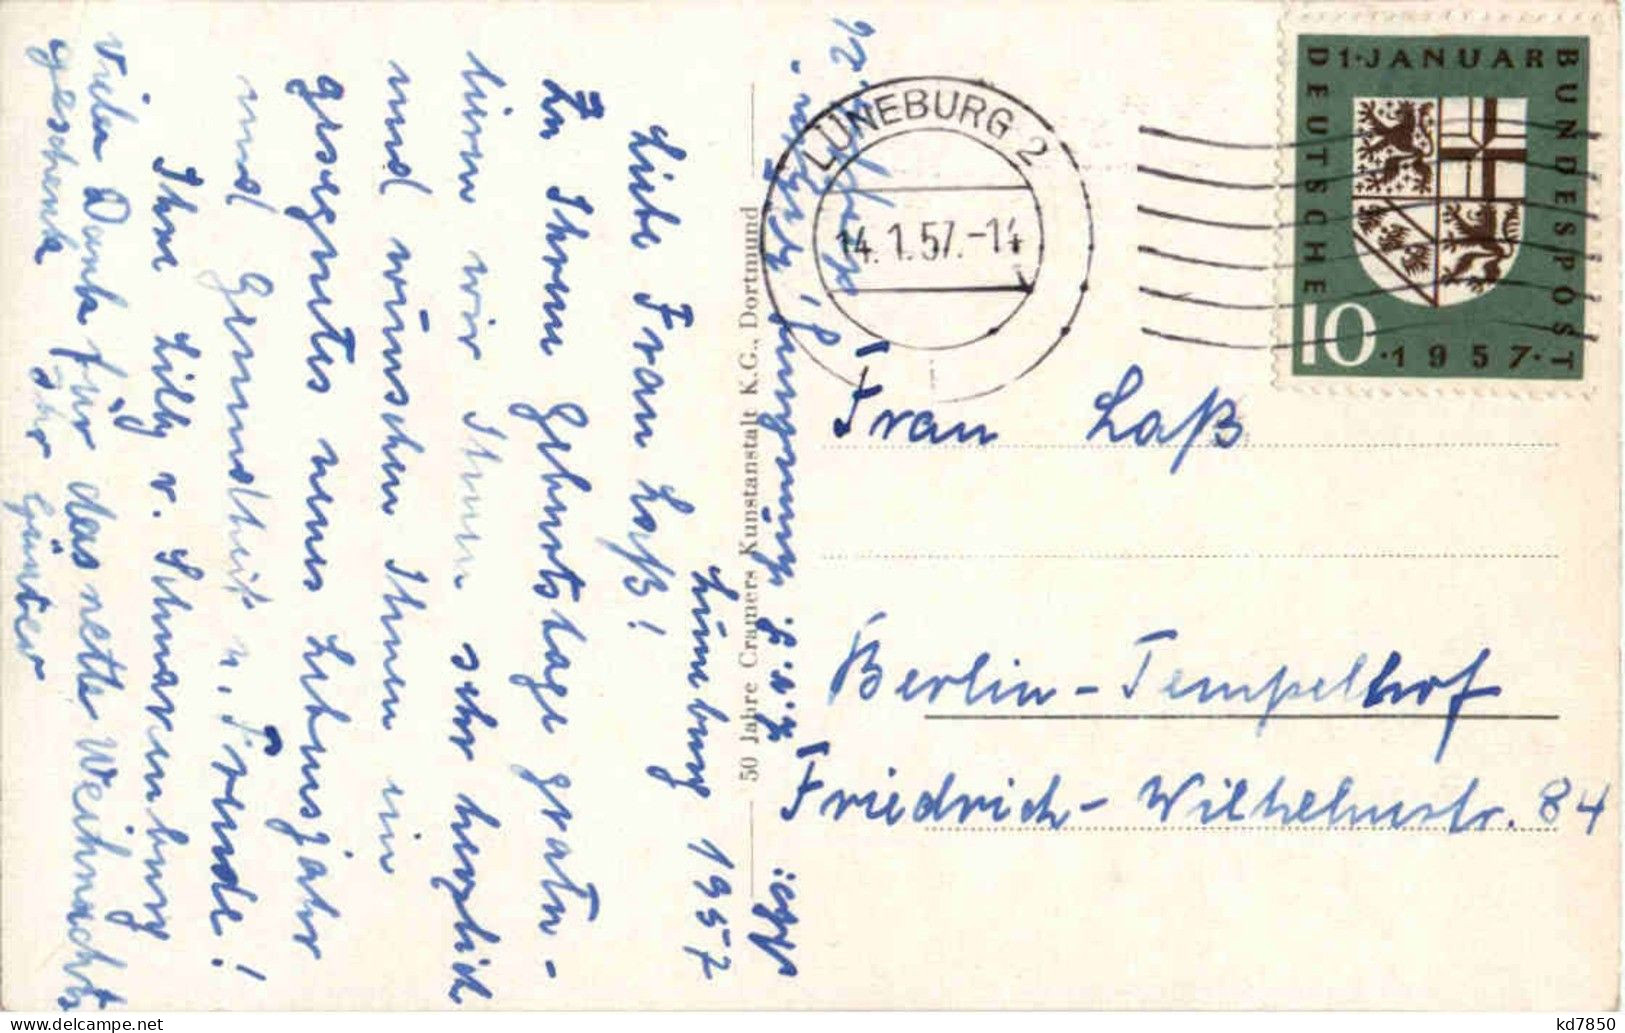 Lüneburg 1957
Liebe Frau Laß!
Zu Ihrem Geburtstage gratu-
lieren wir Ihnen sehr herzlich
und wünschen Ihnen ein
gesegnetes neues Lebensjahr
und Gesundheit u. Freude!
Ihre Lilly v. Schnarenburg
Vielen Dank für das nette Weihnachts
geschenk Ihr Günter
Abs:
50 Jahre Cramers Kunstanstalt K.G., Dortmund
LÜNEBURG 2
14.1.57.-14
1·JANUAR
DEUTSCHE
BUNDESPOST
10
·1957·
Frau Laß
Berlin-Tempelhof
Friedrich-Wilhelmstr. 84
kd7850